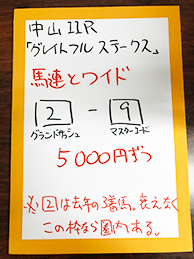 中山11R
「グレイトフルステークス」
馬連とワイド
2 - 9
グランドサッシュ マスターコード
5000円ずつ
※2は去年の3着馬。衰えなく
この枠なら圏内ある。